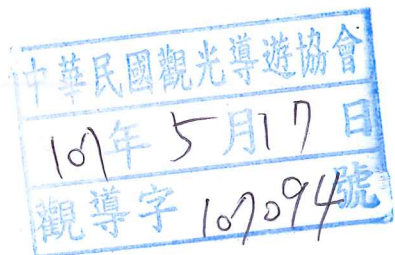 中華民國觀光導遊協會
107年5月17日
觀導字107094號